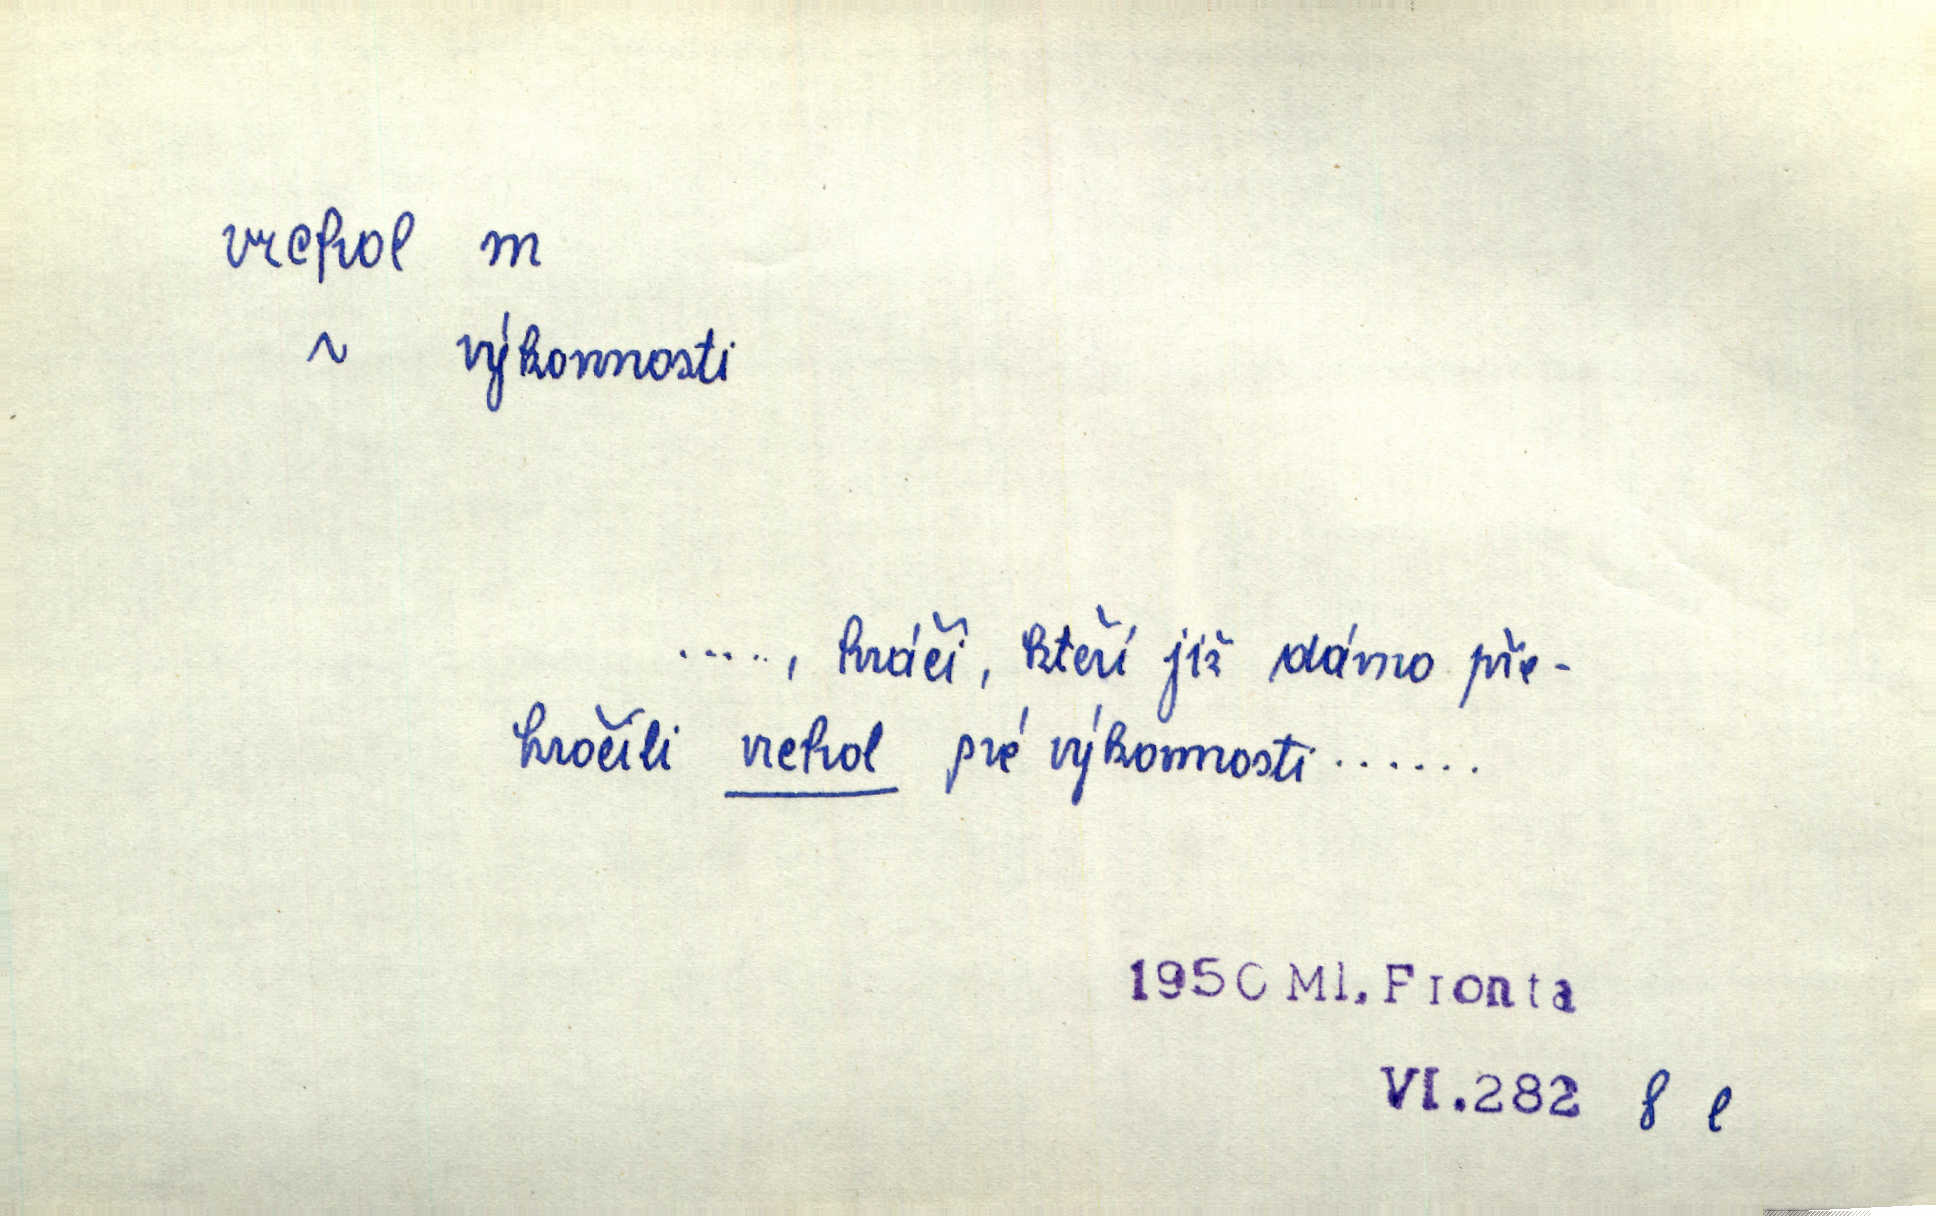 vrchol m
~ výkonnosti
....., hráči, kteří již dávno pře-
kročili vrchol své výkonnosti ......
1950 Ml. Fronta
VI.282 8 e